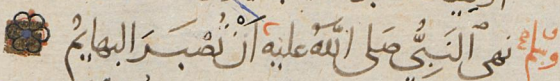 وبه نهى النبي صلى الله عليه أن تصبر البهايم